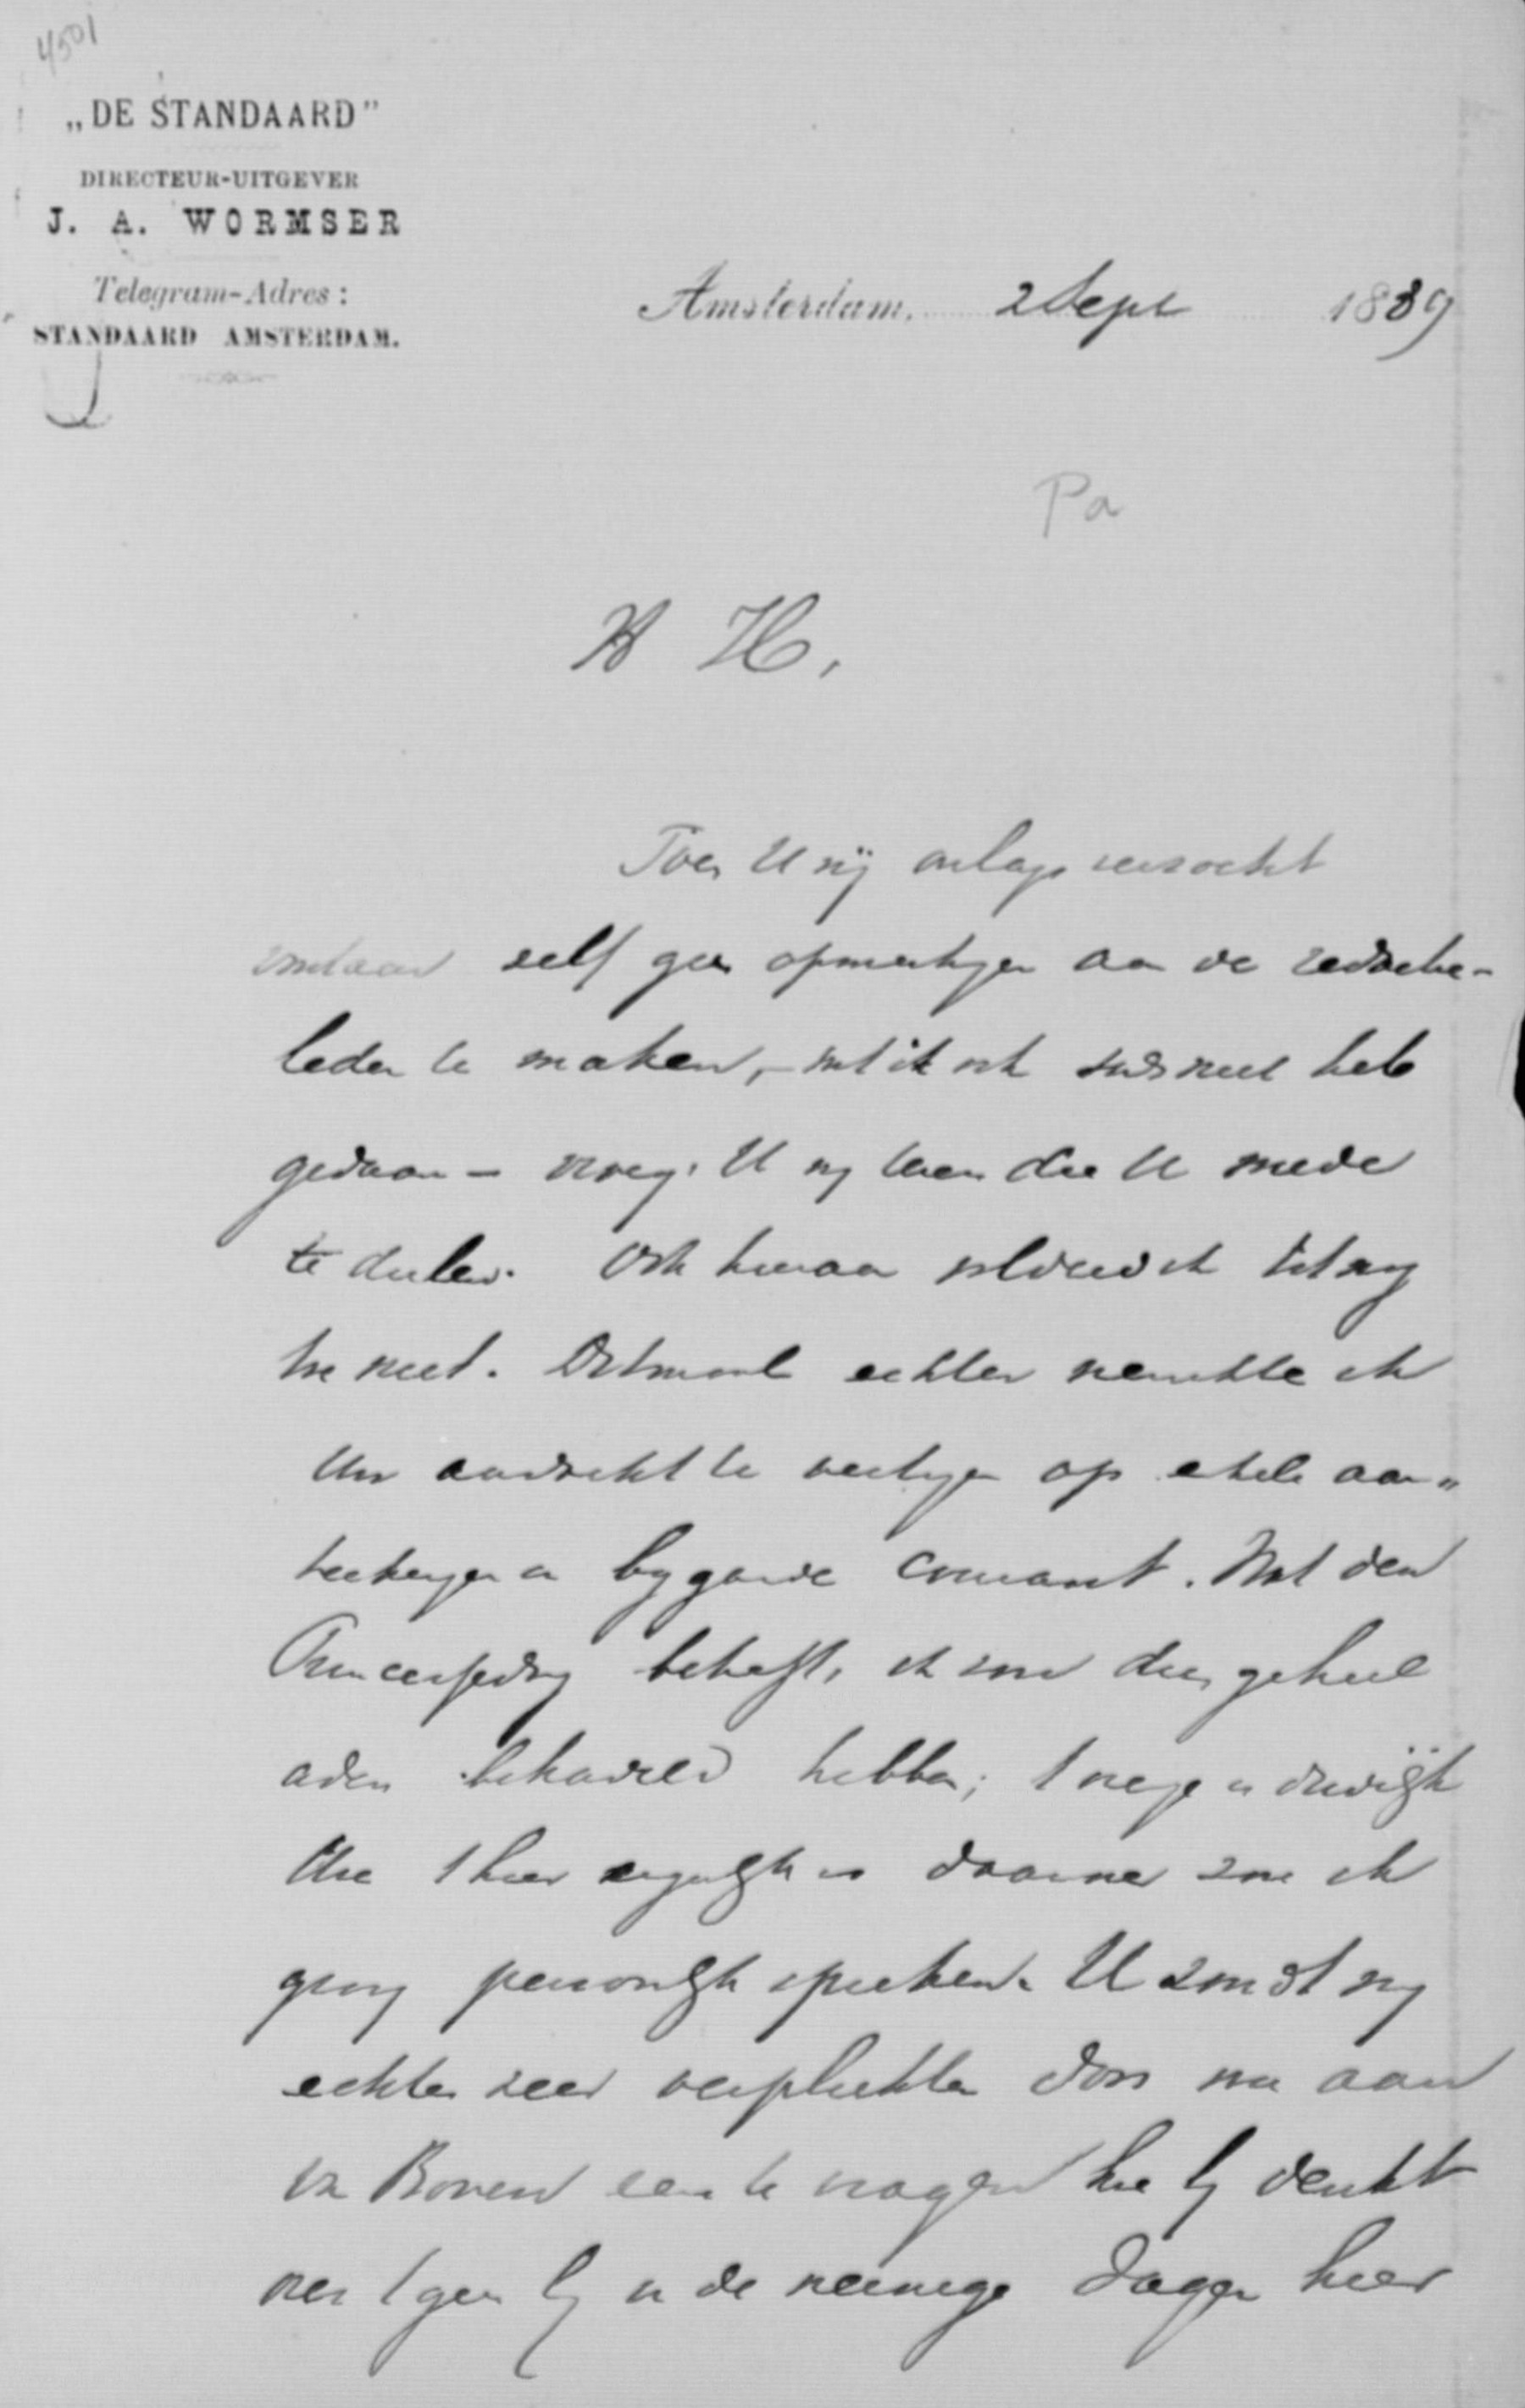 4501
„DE STANDAARD”
DIRECTEUR-UITGEVER
J. A. WORMSER
Telegram-Adres:
STANDAARD AMSTERDAM.
Amsterdam, 2 Sept 1889
Pa
W H,
Toen U mij onlangs verzocht
zelf geen opmerkingen aan de redactie-
leden te maken, - wat ik ook niet heb
gedaan - vroeg U mij toen die U mede
te deelen. Ook hieraan voldeed ik tot nog
toe niet. Ditmaal echter wenschte ik
Uw aandacht te vestigen op enkele aan„
teekeningen in bijgaande courant. Wat den
betreft, ik zou dien geheel
anders behandeld hebben;
daarover zou ik
graag persoonlijk spreken. U zoudt mij
echter zeer verplichten door nu aan
van Boven eens te vragen hoe hij denkt
over hij in de weinige dagen hier